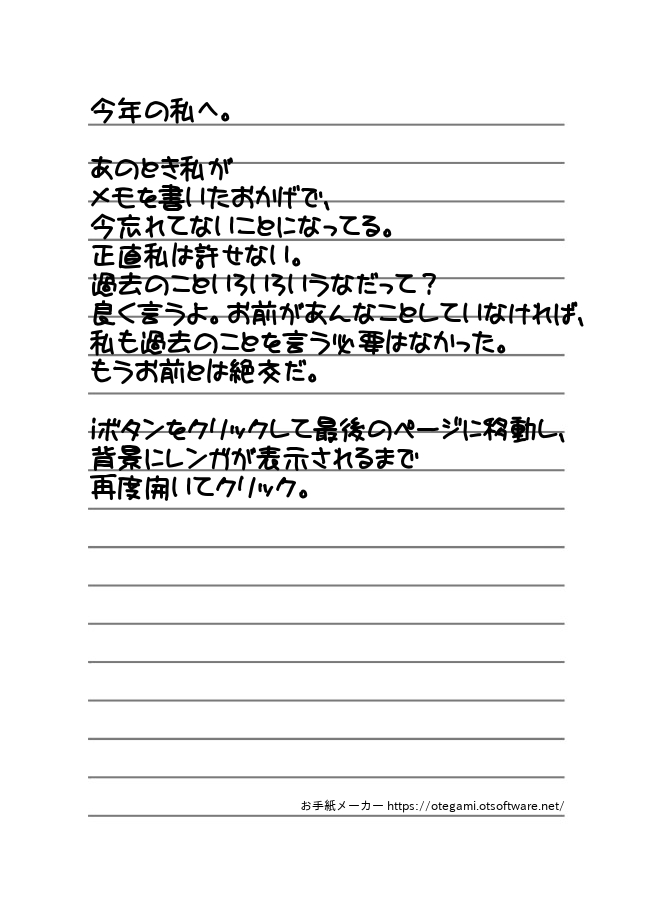 今年の私へ。
あのとき私が
メモを書いたおかげで、
今忘れてないことになってる。
正直私は許せない。
過去のこといろいろいうなだって？
良く言うよ。お前があんなことしていなければ、
私も過去のことを言う必要はなかった。
もうお前とは絶交だ。
iボタンをクリックして最後のページに移動し、
背景にレンガが表示されるまで
再度開いてクリック。
お手紙メーカー https://otegami.otsoftware.net/